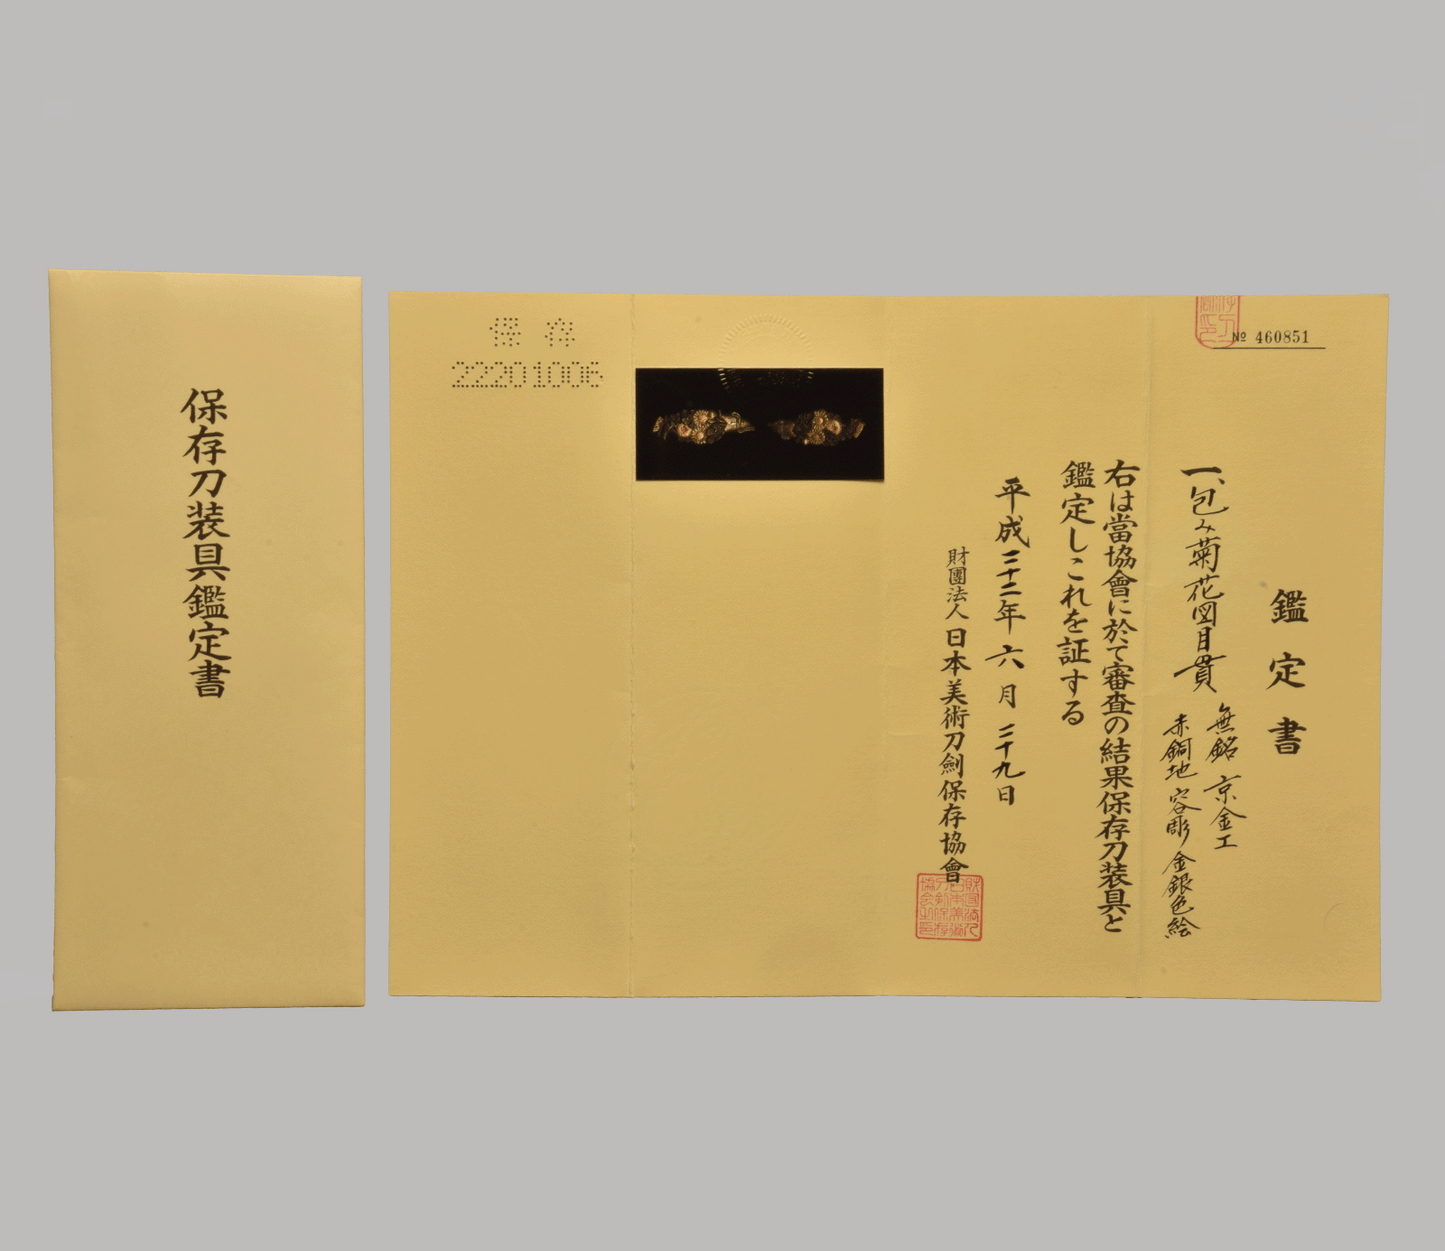 保存刀装具鑑定書
保存
22201006
№ 460851
鑑定書
一、包み菊花図目貫
無銘 京金工
赤銅地 容彫 金銀色絵
右は當協會に於て審査の結果保存刀装具と
鑑定しこれを証する
平成二十二年六月二十九日
財團法人日本美術刀劍保存協會